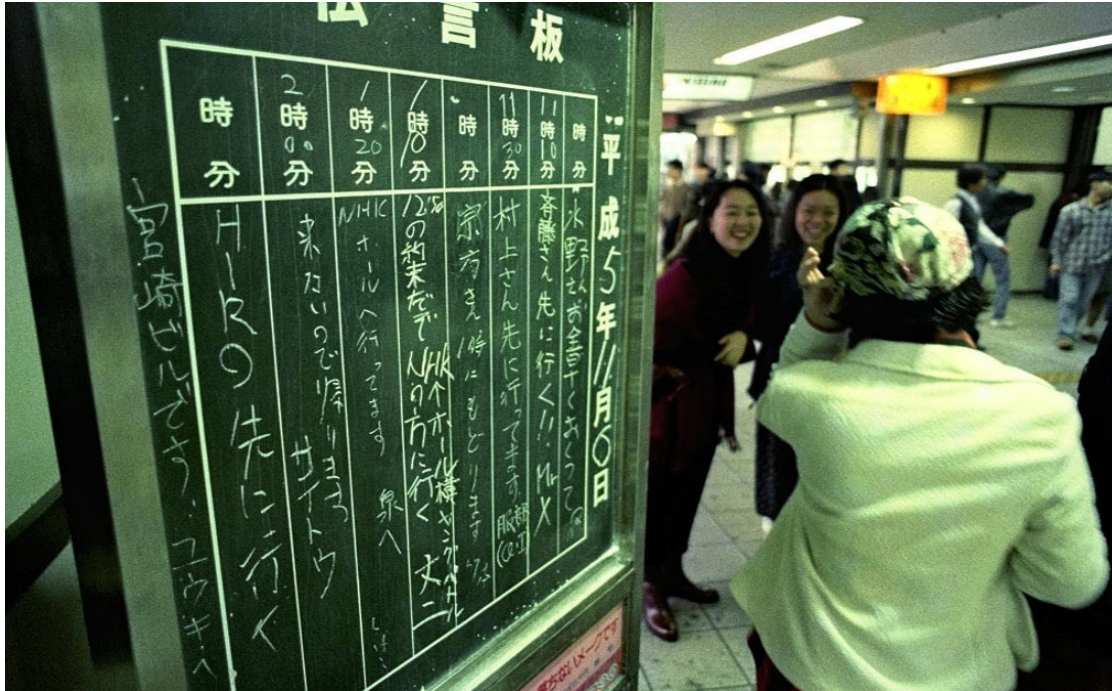 伝言板
平成5年11月6日
時分 水野さんお金早くおくって
11時10分 斉藤さん先に行く!! Mr X
11時30分 村上さん先に行ってます。服部
時分 宗方さん1時にもどります
1時10分 12:50の約束だぞ Nの方に行く 丈二
NHKホール横
1時20分 NHKホールへ行ってます 泉へ
2時00分 来ないので帰りまーす サイトウ
時分 HIROの先に行く
宮崎ビルです。ユウキへ
落ちないメークです